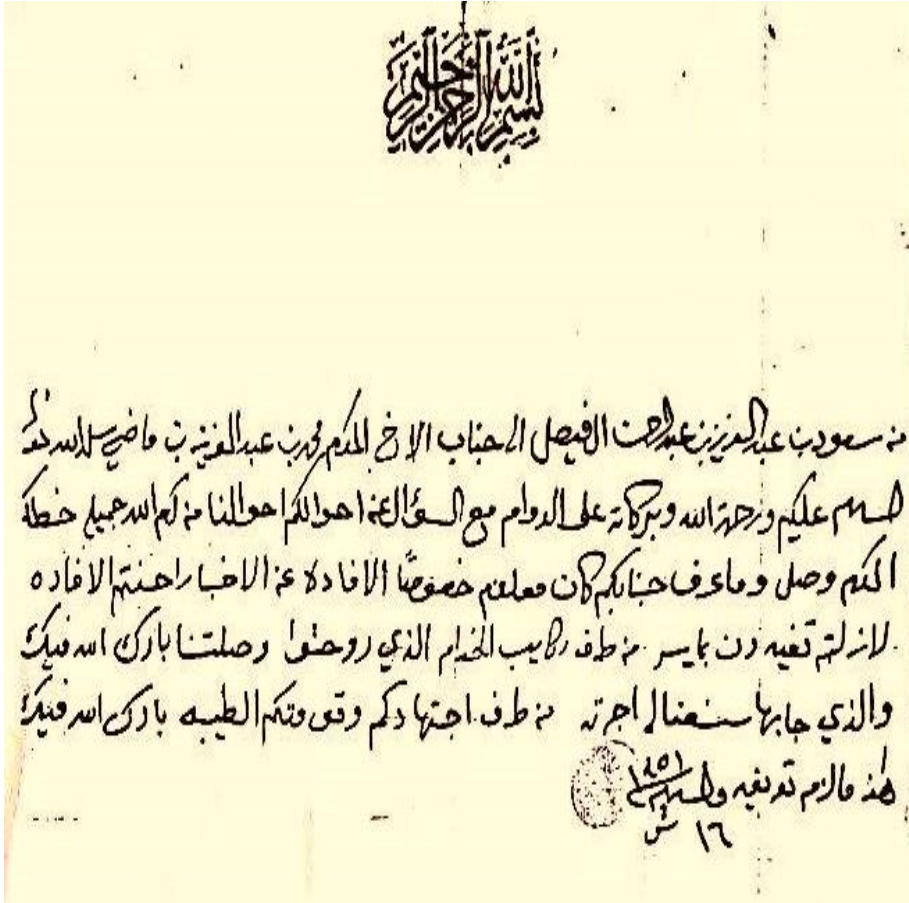 بسم الله الرحمن الرحيم
من سعود بن عبد العزيز بن عبد الرحمن ال فيصل الى جناب الاخ المكرم محمد بن عبد العزيز بن ماضي سلمه الله
السلام عليكم ورحمة الله وبركاته على الدوام مع السؤال عن احوالكم احوالنا من كرم الله جميله خطكم
المكرم وصل وما عرف جنابكم كان معلوم خصوصًا الافادة عن الاخبار احسنتم الافاده
لازلتم تفيدون بما يسر من طرف ركايب الخدام الذي روحتوا وصلتنا بارك الله فيك
والذي جابها سنعنا له اجرته من طرف اجتهادكم وقومتكم الطيبه بارك الله فيك
هذا مالزم تعريفه والسلام
١٦ ش